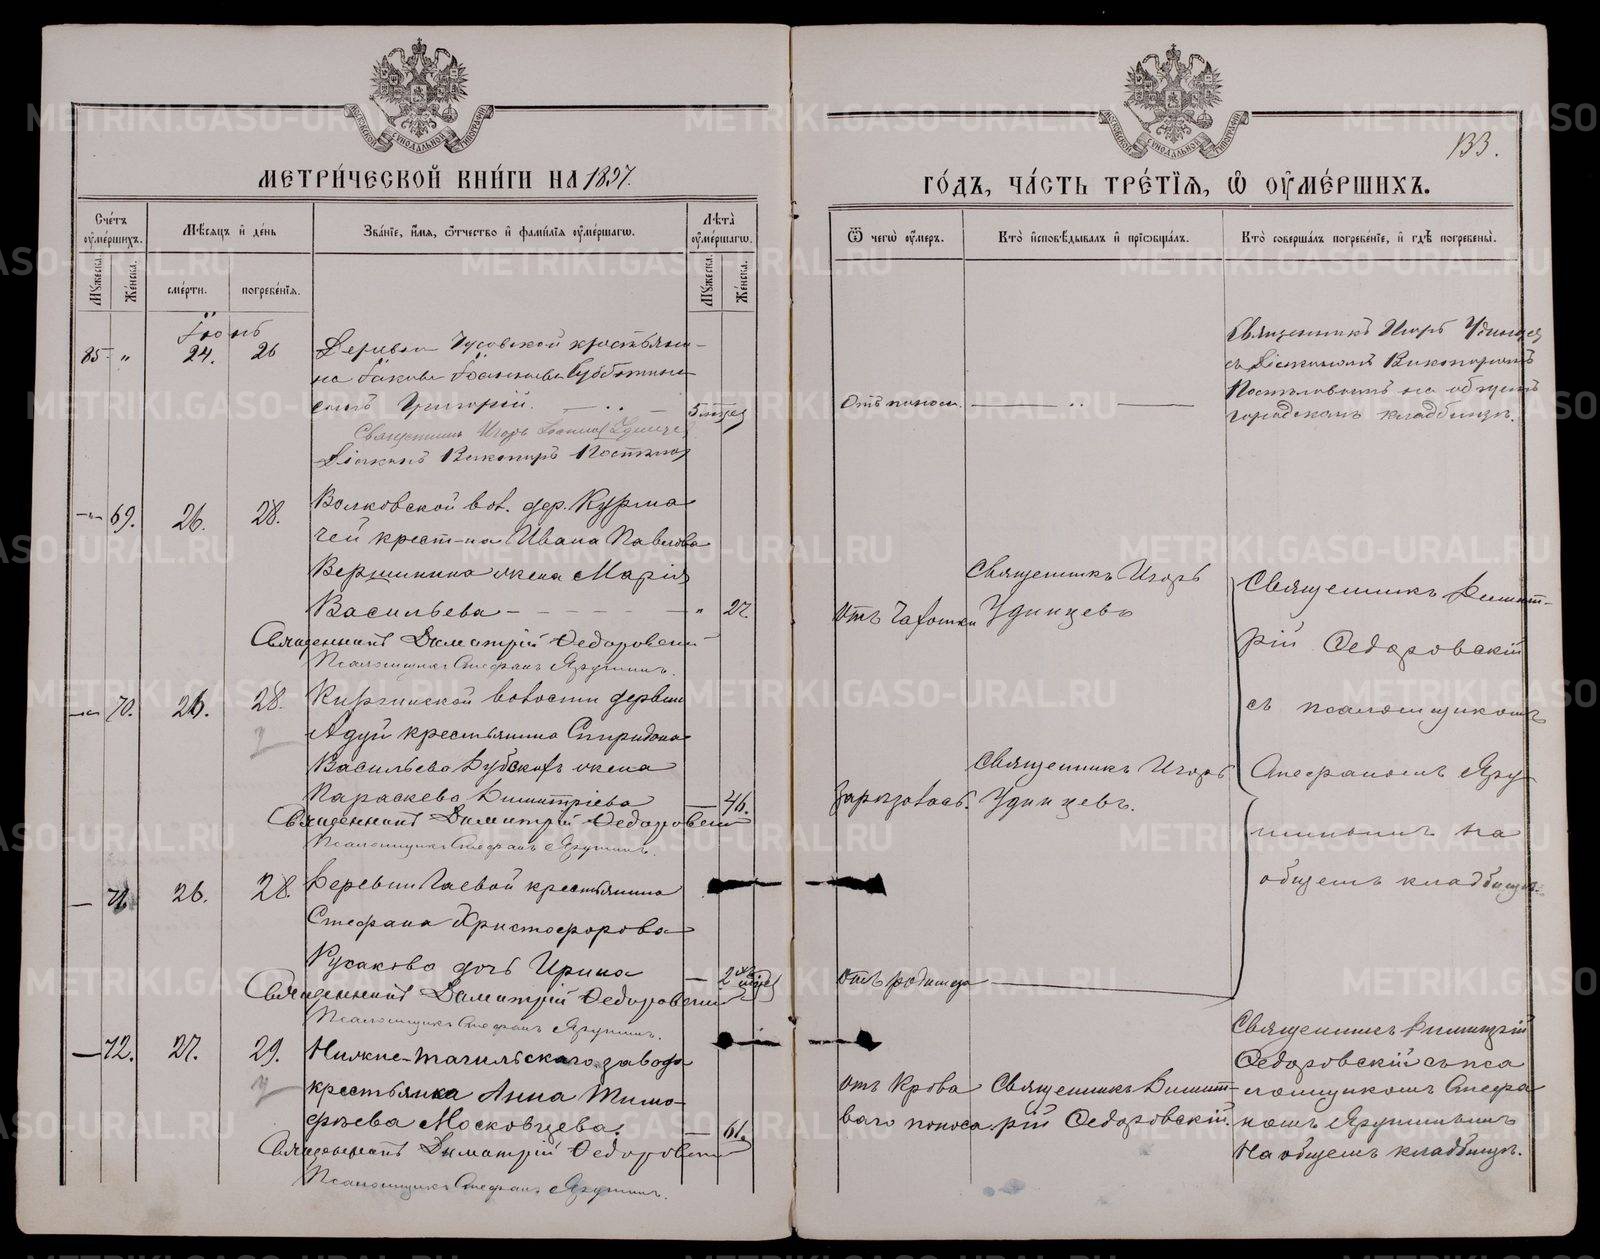 МЕТРИ́ЧЕСКОЙ КНИ́ГИ НА 1897.
ГО́ДЪ, ЧА́СТЬ ТРЕ́ТІѦ, Ѡ҆ ОУ҆МЕ́РШИХЪ.
133.
Сче́тъ оу҆ме́ршихъ.
Мꙋжеска.
Же́нска.
Мѣ́сѧцъ и҆ де́нь
сме́рти.
погребе́нїѧ.
Зва́нїе, и҆́мѧ, ѻ҆́тчество и҆ фами́лїѧ оу҆ме́ршагѡ.
Лѣ́та оу҆ме́ршагѡ.
Мꙋжеска.
Же́нска.
Ѿ чегѡ̀ оу҆́меръ.
Кто̀ и҆сповѣ́дывалъ и҆ прїѡбща́лъ.
Кто̀ соверша́лъ погребе́нїе, и҆ гдѣ̀ погребены̀.
Іюнь
85 „ 24. 26
Деревни Чусовской крестьяни-
на Іакова Іоаннова Субботина
сынъ Григорій. 5 мѣсяц
Священникъ Игорь Удинцев
Діаконъ Виктор
Отъ поноса.
Священникъ Игорь Удинцев
съ Діакономъ
на общемъ
городскомъ кладбищѣ.
69. 26. 28.
Волковской вол. дер. Курма-
чей крест-на Ивана Павлова
Вершинина жена Марія
Васильева „ 27.
Священникъ Димитрій Федоровскій
Псаломщикъ Стефанъ Ярушинъ.
Отъ Чахотки
Священникъ Игорь
Удинцевъ
Священникъ Димит-
рій Федоровскій
съ псаломщикомъ
Стефаномъ Яру-
шинымъ на
общемъ кладбищѣ.
70. 26. 28.
волости деревни
Адуй крестьянина Спиридона
Васильева жена
Параскева Димитріева 46.
Священникъ Димитрій Федоровскій
Псаломщикъ Стефанъ Ярушинъ.
Священникъ Игорь
Удинцевъ.
71. 26. 28.
Деревни Гаевой крестьянина
Стефана Христофорова
Русакова дочь Ирина 2
Священникъ Димитрій Федоровскій
Псаломщикъ Стефанъ Ярушинъ.
Отъ родимца
72. 27. 29.
Нижне-Тагильскаго завода
крестьянка Анна Тимо-
фѣева Московцева. 61.
Священникъ Димитрій Федоровскій
Псаломщикъ Стефанъ Ярушинъ.
Отъ Крова
ваго поноса
Священникъ Димит-
рій Федоровскій.
Священникъ Димитрій
Федоровскій съ пса
ломщикомъ Стефа
номъ Ярушинымъ
На общемъ кладбищѣ.
METRIKI.GASO-URAL.RU